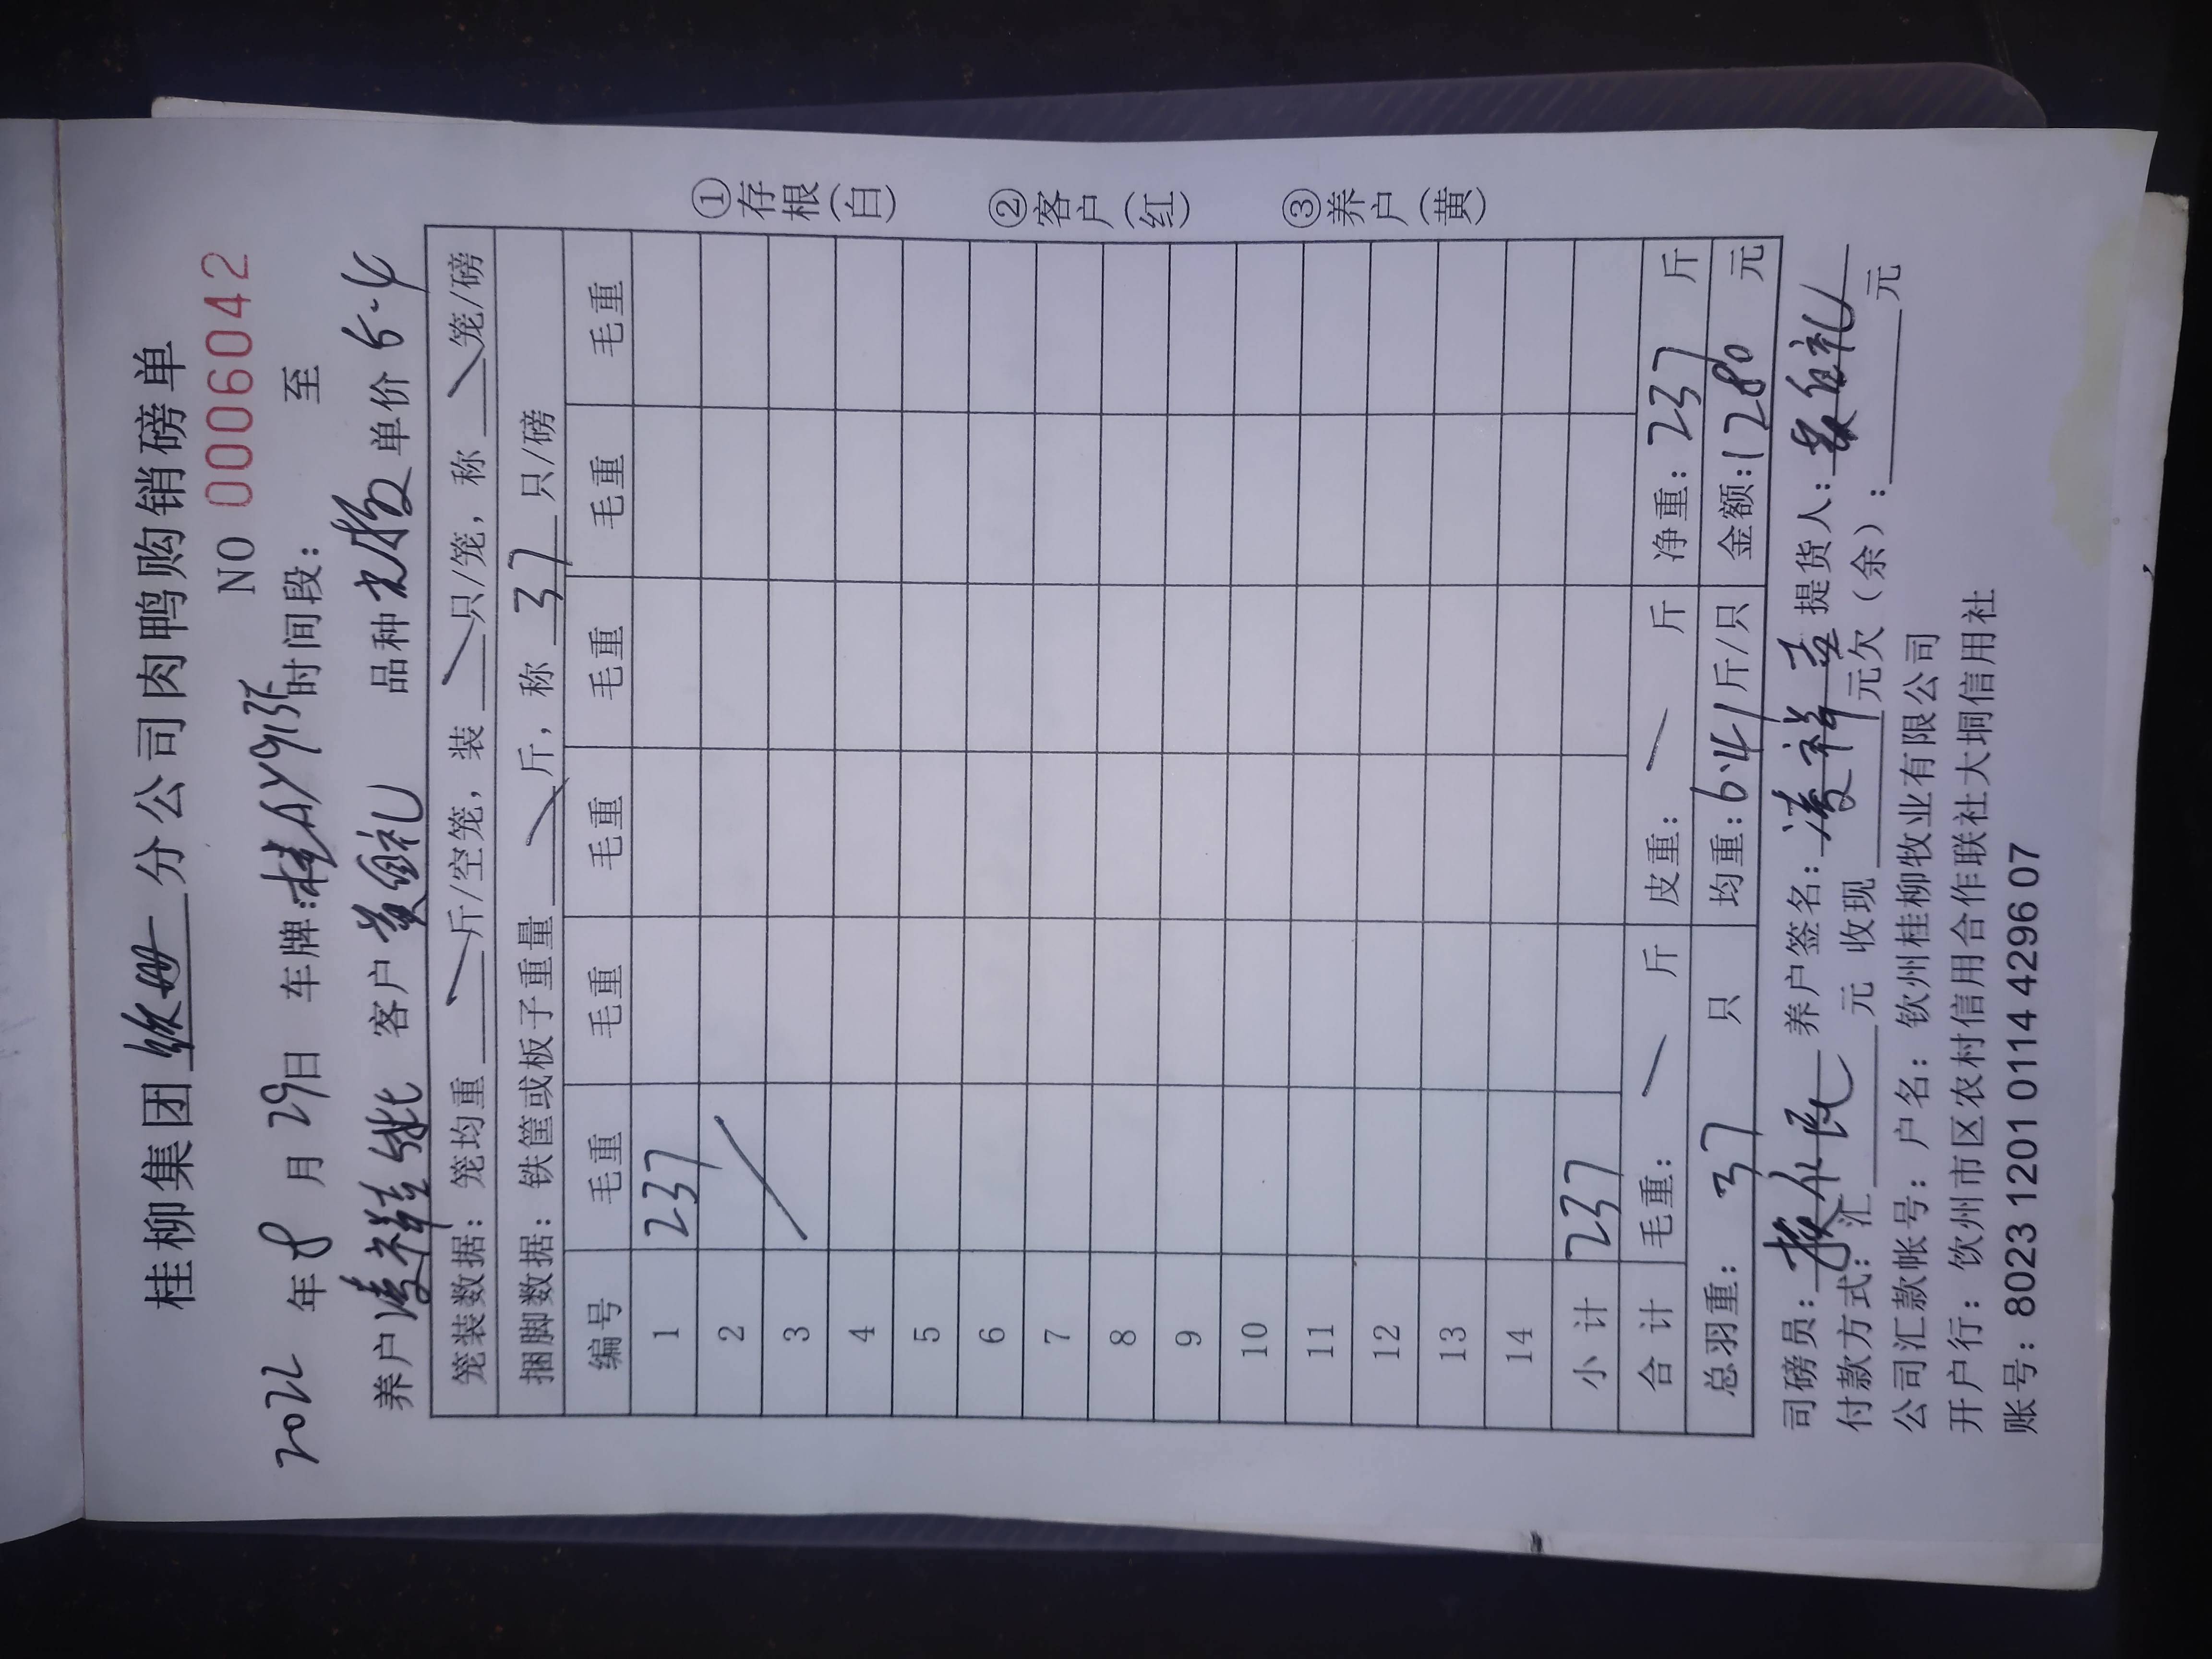 桂柳集团 钦州 分公司肉鸭购销磅单
NO 0006042
2022 年 8 月 29 日 车牌:桂AY913F 时间段: 至
养户 凌祥 客户 黄 礼 品种 单价 5.4
笼装数据: 笼均重 / 斤/空笼, 装 / 只/笼, 称 / 笼/磅
捆脚数据: 铁筐或板子重量 / 斤, 称 37 只/磅
编号 毛重 毛重 毛重 毛重 毛重 毛重
1 237
2
3
4
5
6
7
8
9
10
11
12
13
14
小 计 237
合 计 毛重: / 斤 皮重: / 斤 净重: 237 斤
总羽重: 37 只 均重: 6.41 斤/只 金额: 1280 元
司磅员: 养户签名: 凌祥 提货人: 礼
付款方式: 汇 元 收现 元欠(余): 元
公司汇款帐号: 户名: 钦州桂柳牧业有限公司
开户行: 饮州市区农村信用合作联社大垌信用社
账号: 8023 1201 0114 4296 07
①存根(白)
②客户(红)
③养户(黄)